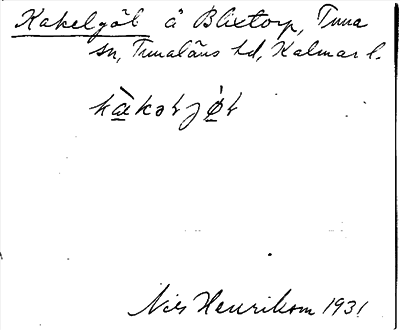 Kakelgöl å Blixtorp, Tuna
sn, Tunaläns hd, Kalmar l.
Nils Henrikson 1931